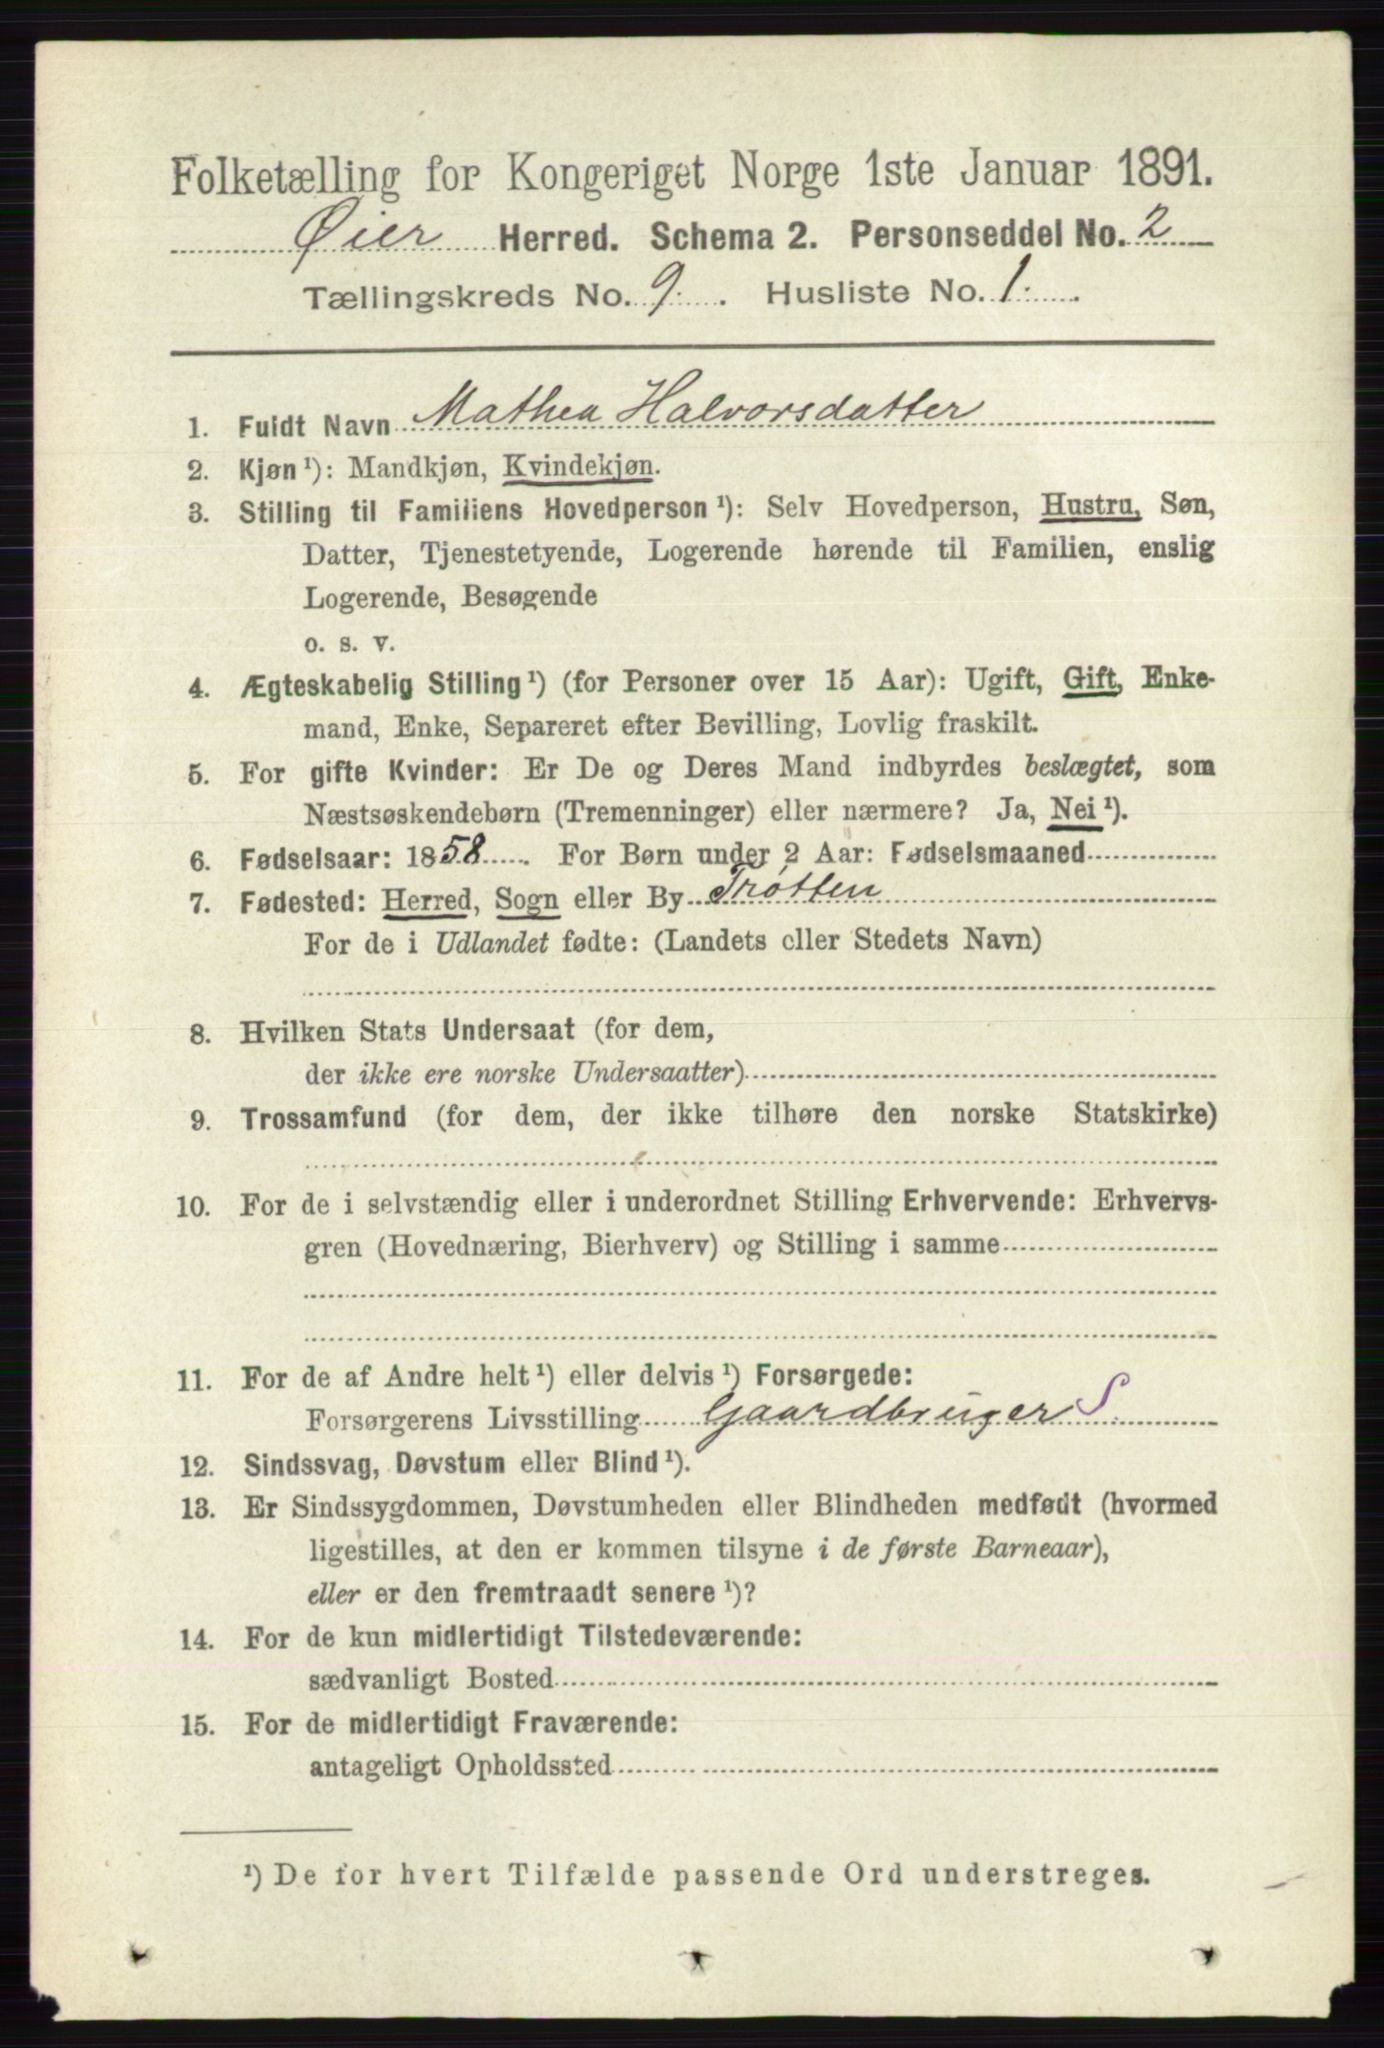 Folketælling for Kongeriget Norge 1ste Januar 1891.
Øier Herred. Schema 2. Personseddel No. 2
Tællingskreds No. 9. Husliste No. 1.
1. Fuldt Navn Mathea Halvorsdatter
2. Kjøn ¹): Mandkjøn, Kvindekjøn.
3. Stilling til Familiens Hovedperson ¹): Selv Hovedperson, Hustru, Søn,
Datter, Tjenestetyende, Logerende hørende til Familien, enslig
Logerende, Besøgende
o. s. v.
4. Ægteskabelig Stilling ¹) (for Personer over 15 Aar): Ugift, Gift, Enke-
mand, Enke, Separeret efter Bevilling, Lovlig fraskilt.
5. For gifte Kvinder: Er De og Deres Mand indbyrdes beslægtet, som
Næstsøskendebørn (Tremenninger) eller nærmere? Ja, Nei ¹).
6. Fødselsaar: 1858. For Børn under 2 Aar: Fødselsmaaned
7. Fødested: Herred, Sogn eller By Trøtten
For de i Udlandet fødte: (Landets eller Stedets Navn)
8. Hvilken Stats Undersaat (for dem,
der ikke ere norske Undersaatter)
9. Trossamfund (for dem, der ikke tilhøre den norske Statskirke)
10. For de i selvstændig eller i underordnet Stilling Erhvervende: Erhvervs-
gren (Hovednæring, Bierhverv) og Stilling i samme
11. For de af Andre helt ¹) eller delvis ¹) Forsørgede:
Forsørgerens Livsstilling Gaardbruger S.
12. Sindssvag, Døvstum eller Blind ¹).
13. Er Sindssygdommen, Døvstumheden eller Blindheden medfødt (hvormed
ligestilles, at den er kommen tilsyne i de første Barneaar),
eller er den fremtraadt senere ¹)?
14. For de kun midlertidigt Tilstedeværende:
sædvanligt Bosted
15. For de midlertidigt Fraværende:
antageligt Opholdssted
¹) De for hvert Tilfælde passende Ord understreges.